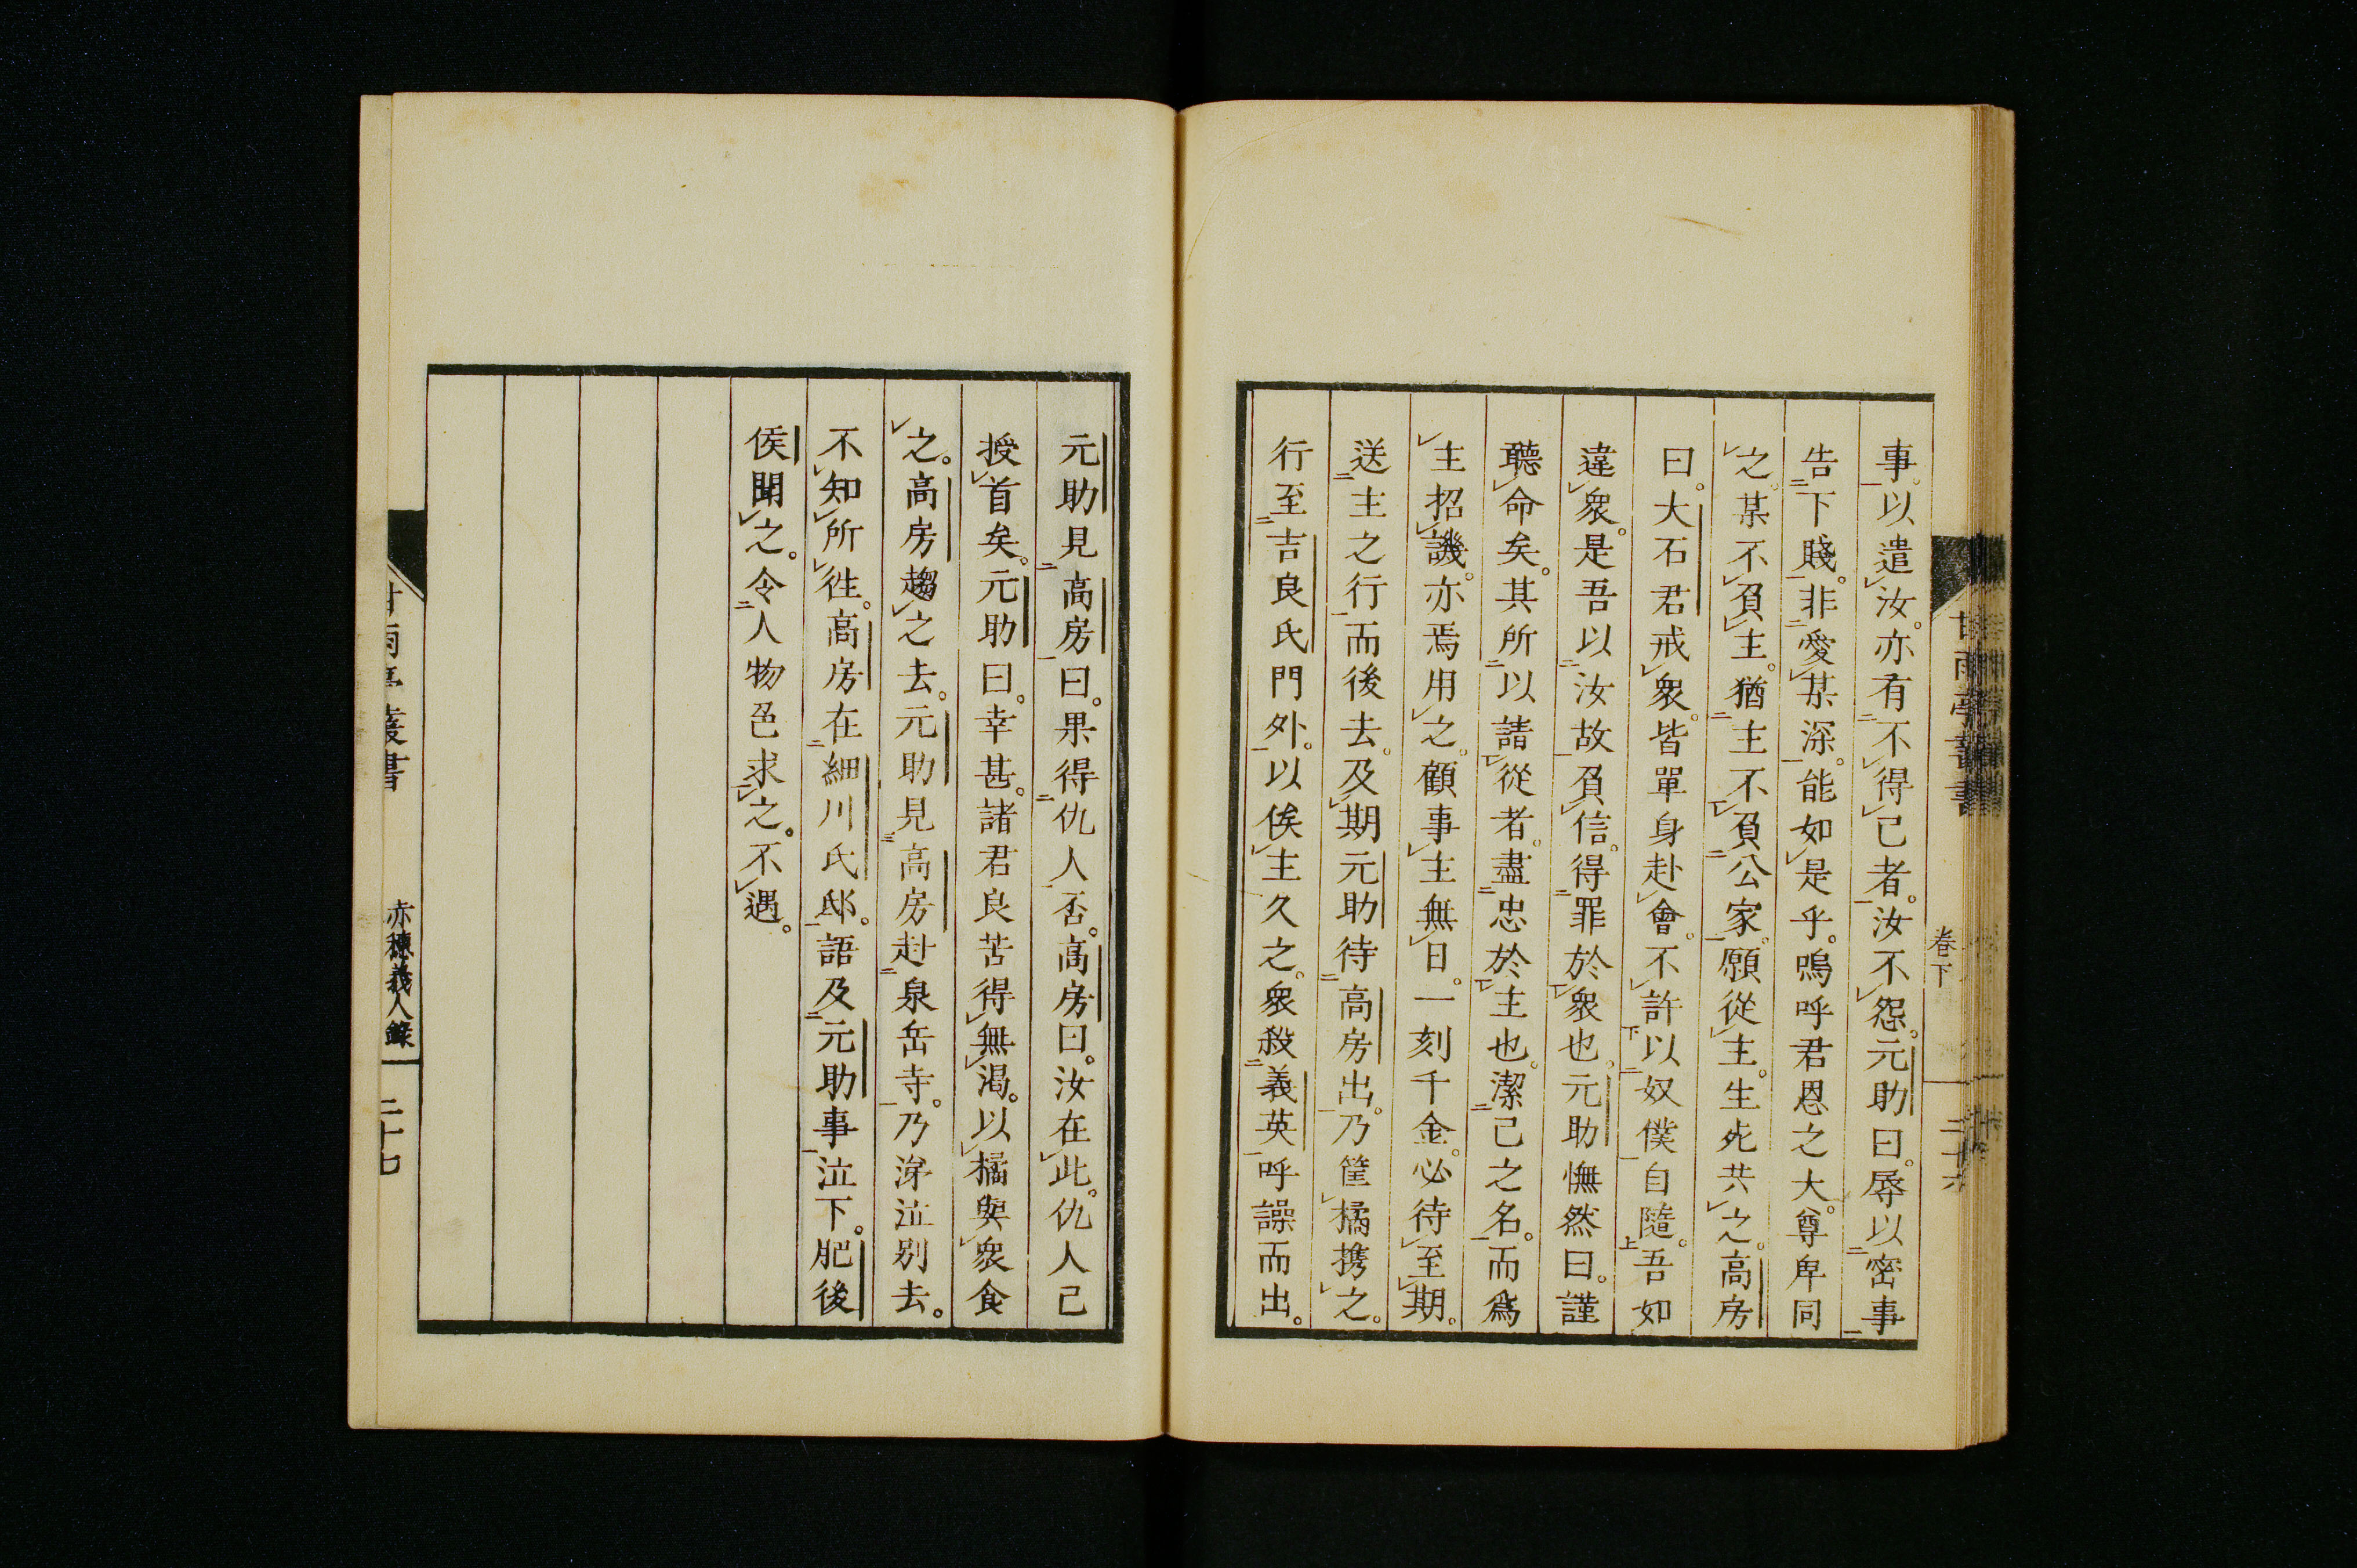 事。以遣汝。亦有不得已者。汝不怨。元助曰。辱以密事
告下賤。非愛某深。能如是乎。嗚呼君恩之大。尊卑同
之。某不負主。猶主不負公家。願從主。生死共之。高房
曰。大石君戒衆。皆單身赴會。不許以奴僕自隨。吾如
違衆。是吾以汝故負信。得罪於衆也。元助憮然曰。謹
聽命矣。其所以請從者。盡忠於主也。潔己之名。而爲
主招譏。亦焉用之。顧事主無日。一刻千金。必待至期。
送主之行而後去。及期元助待高房出。乃筐橘携之。
行至吉良氏門外。以俟主久之。衆殺義英呼譟而出。
元助見高房曰。果得仇人否。高房曰。汝在此。仇人已
授首矣。元助曰。幸甚。諸君良苦得無渴。以橘與衆食
之。高房趨之去。元助見高房赴泉岳寺。乃涕泣別去。
不知所往。高房在細川氏邸。語及元助事泣下。肥後
侯聞之。令人物色求之。不遇。
甘雨亭叢書
卷下
二十六
雨亭叢書
赤穗義人錄
二十七